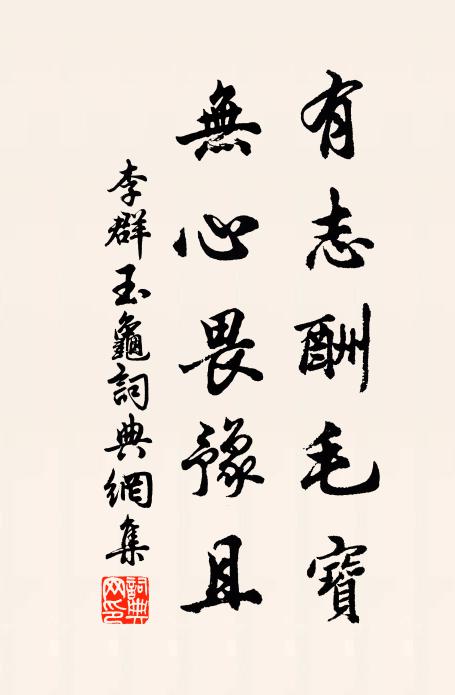 有志酬毛寶
無心畏豫且
李群玉龜詞典網集
詞典網印